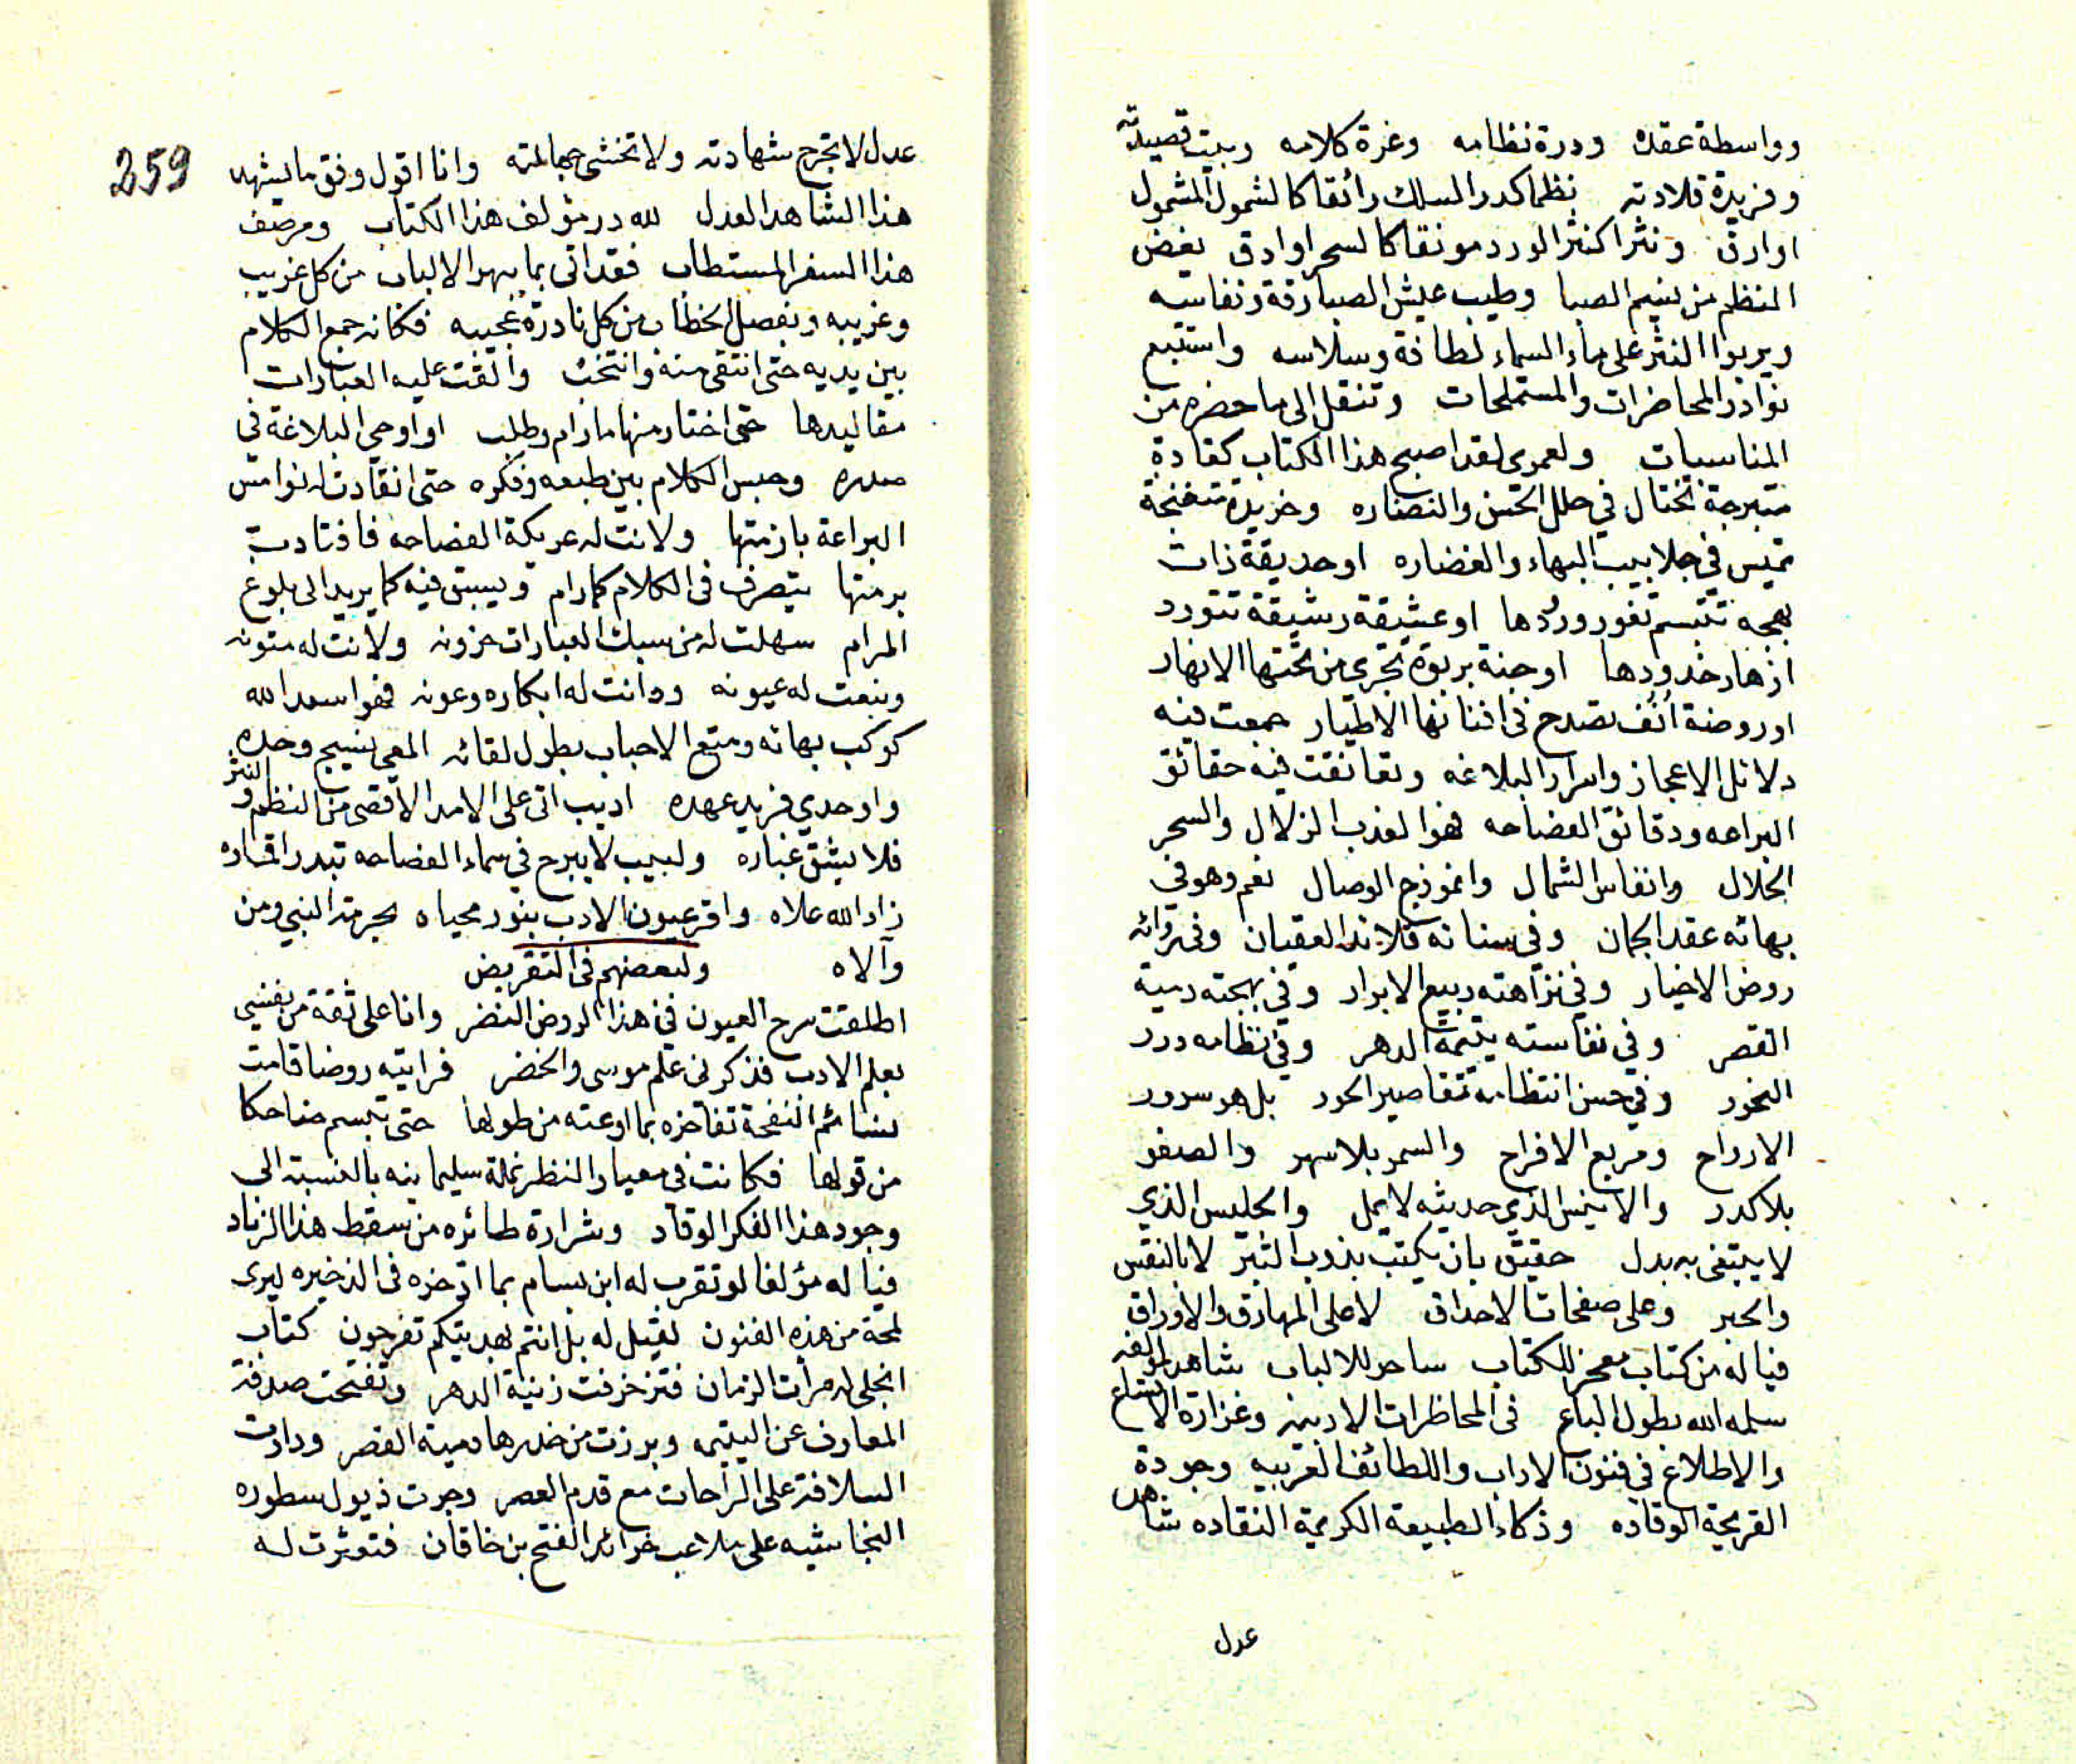 وواسطة عقده ودرة نظامه وغرة كلامه وبيت قصيدته
وفريدة قلادته نظما كدر السلك رائقا كالشمول المشمول
اوارق ونثرا كنثر الورد مونقا كالسحر اوادق يغض
المنظم من نسيم الصبا وطيب عيش الصبا رقة ونفاسه
ويربوا النثر على ماء السماء لطافة وسلاسه واستتبع
نوادر المحاضرات والمستملحات وتنقل الى ما حضره من
المناسبات ولعمري لقد اصبح هذا الكتاب كغادة
متبرجة تختال في حلل الحسن والنضاره وخريدة متغنجة
تميس في جلابيب البهاء والغضاره او حديقة ذات
بهجه تتبسم ثغور ورودها او عشيقة رشيقة تتورد
ازهار خدودها او جنة بربوة تجري من تحتها الانهار
او روضة انف تصدح في افنانها الاطيار جمعت فيه
دلائل الاعجاز واسرار البلاغه وتعانقت فيه حقائق
البراعه ودقائق الفصاحه فهو العذب الزلال والسحر
الحلال وانفاس الشمال وانموذج الوصال نعم وهو في
بهائه عقد الجمان وفي سنائه قلائد العقيان وفي روائه
روض الاخيار وفي نزاهته ربيع الابرار وفي بهجته دمية
القصر وفي نفاسته يتيمة الدهر وفي نظامه درر
النحور وفي حسن انتظامه تقاصير الحور بل هو سرور
الارواح ومربع الافراح والسمر بلا سهر والصفو
بلا كدر والانيس الذي حديثه لا يمل والجليس الذي
لا يبتغى به بدل حقيق بان يكتب بذوب التبر لا بالنقس
والحبر وعلى صفحات الاحداق لا على المهارق والاوراق
فياله من كتاب معجز للكتاب ساحر للالباب شاهد لمؤلفه
سلمه الله بطول الباع في المحاظرات الادبيه وغزارة الاتساع
والاطلاع في فنون الاداب واللطائف الغريبه وجودة
القريحة الوقاده وذكاء الطبيعة الكريمة النقاده شاهد
عدل
259
عدل لا تجرح شهادته ولا تخشى جهالته وانا اقول وفق ما يشهد
هذا الشاهد العدل لله در مؤلف هذا الكتاب ومرصف
هذا السفر المستطاب فقد اتى بما يبهر الالباب من كل غريب
وغريبه وبفصل الخطاب من كل نادرة عجيبه فكانه جمع الكلام
بين يديه حتى انتقى منه وانتخب والقت عليه العبارات
مقاليدها حتى اختار منها ما رام وطلب او اوحي البلاغة في
صدره وحبس الكلام بين طبعه وفكره حتى انقادت له نوامس
البراعة بازمتها ولانت له عريكة الفصاحه فاقتادت
برمتها يتصرف في الكلام كما رام ويسبق فيه كما يريد الى بلوغ
المرام سهلت له من سبك العبارات حزونه ولانت له متونه
ونبعت له عيونه ودانت له ابكاره وعونه فهو اسعد الله
كوكب بهائه ومتع الاحباب بطول لقائه المعي نسيج وحده
واوحدي فريد عهده اديب اتى على الامد الاقصى من النظم والنثر
فلا يشق غباره ولبيب لا يبرح في سماء الفصاحه تبدر اقماره
زاد الله علاه واقر عيون الادب بنور محياه بحرمة النبي ومن
وآلاه ولبعضهم في التقريض
اطلقت سرح العيون في هذا الروض النضر وانا على ثقة من نفسي
بعلم الادب فذكرني علم موسى والخضر فرايته روضا قامت
نسائم النفحة تفاخره بما اوعته من طولها حتى تبسم ضاحكا
من قولها فكانت في معيار النظر نملة سليمانيه بالنسبة الى
وجود هذا الفكر الوقاد وشرارة طائره من سقط هذا الزناد
فيا له مؤلفا لو تقرب له ابن بسام بما ادخره في الذخيره ليرى
لمحة من هذه الفنون لقيل له بل انتم بهديتكم تفرحون كتاب
انجلى له مرأت الزمان فتزخرفت زنية الدهر وتفتحت صدفة
المعارف عن اليتيمه وبرزت من خدرها دمية القصر ودارت
السلافة على الراحات مع قدم العصر وجرت ذيول سطوره
النجاشيه على ملاعب خرائد الفتح بن خاقان فتعثرت له